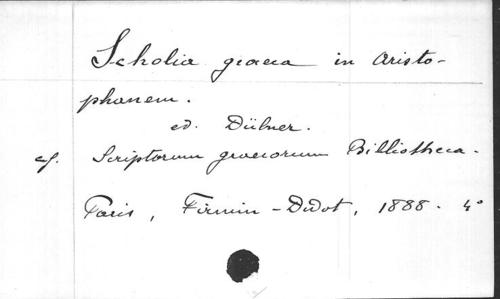 Scholia graeca in Aristo-
phanem.
ed. Dübner.
cf. Scriptorum graecorum Bibliotheca.
Paris, Firmin-Didot, 1888. 4°